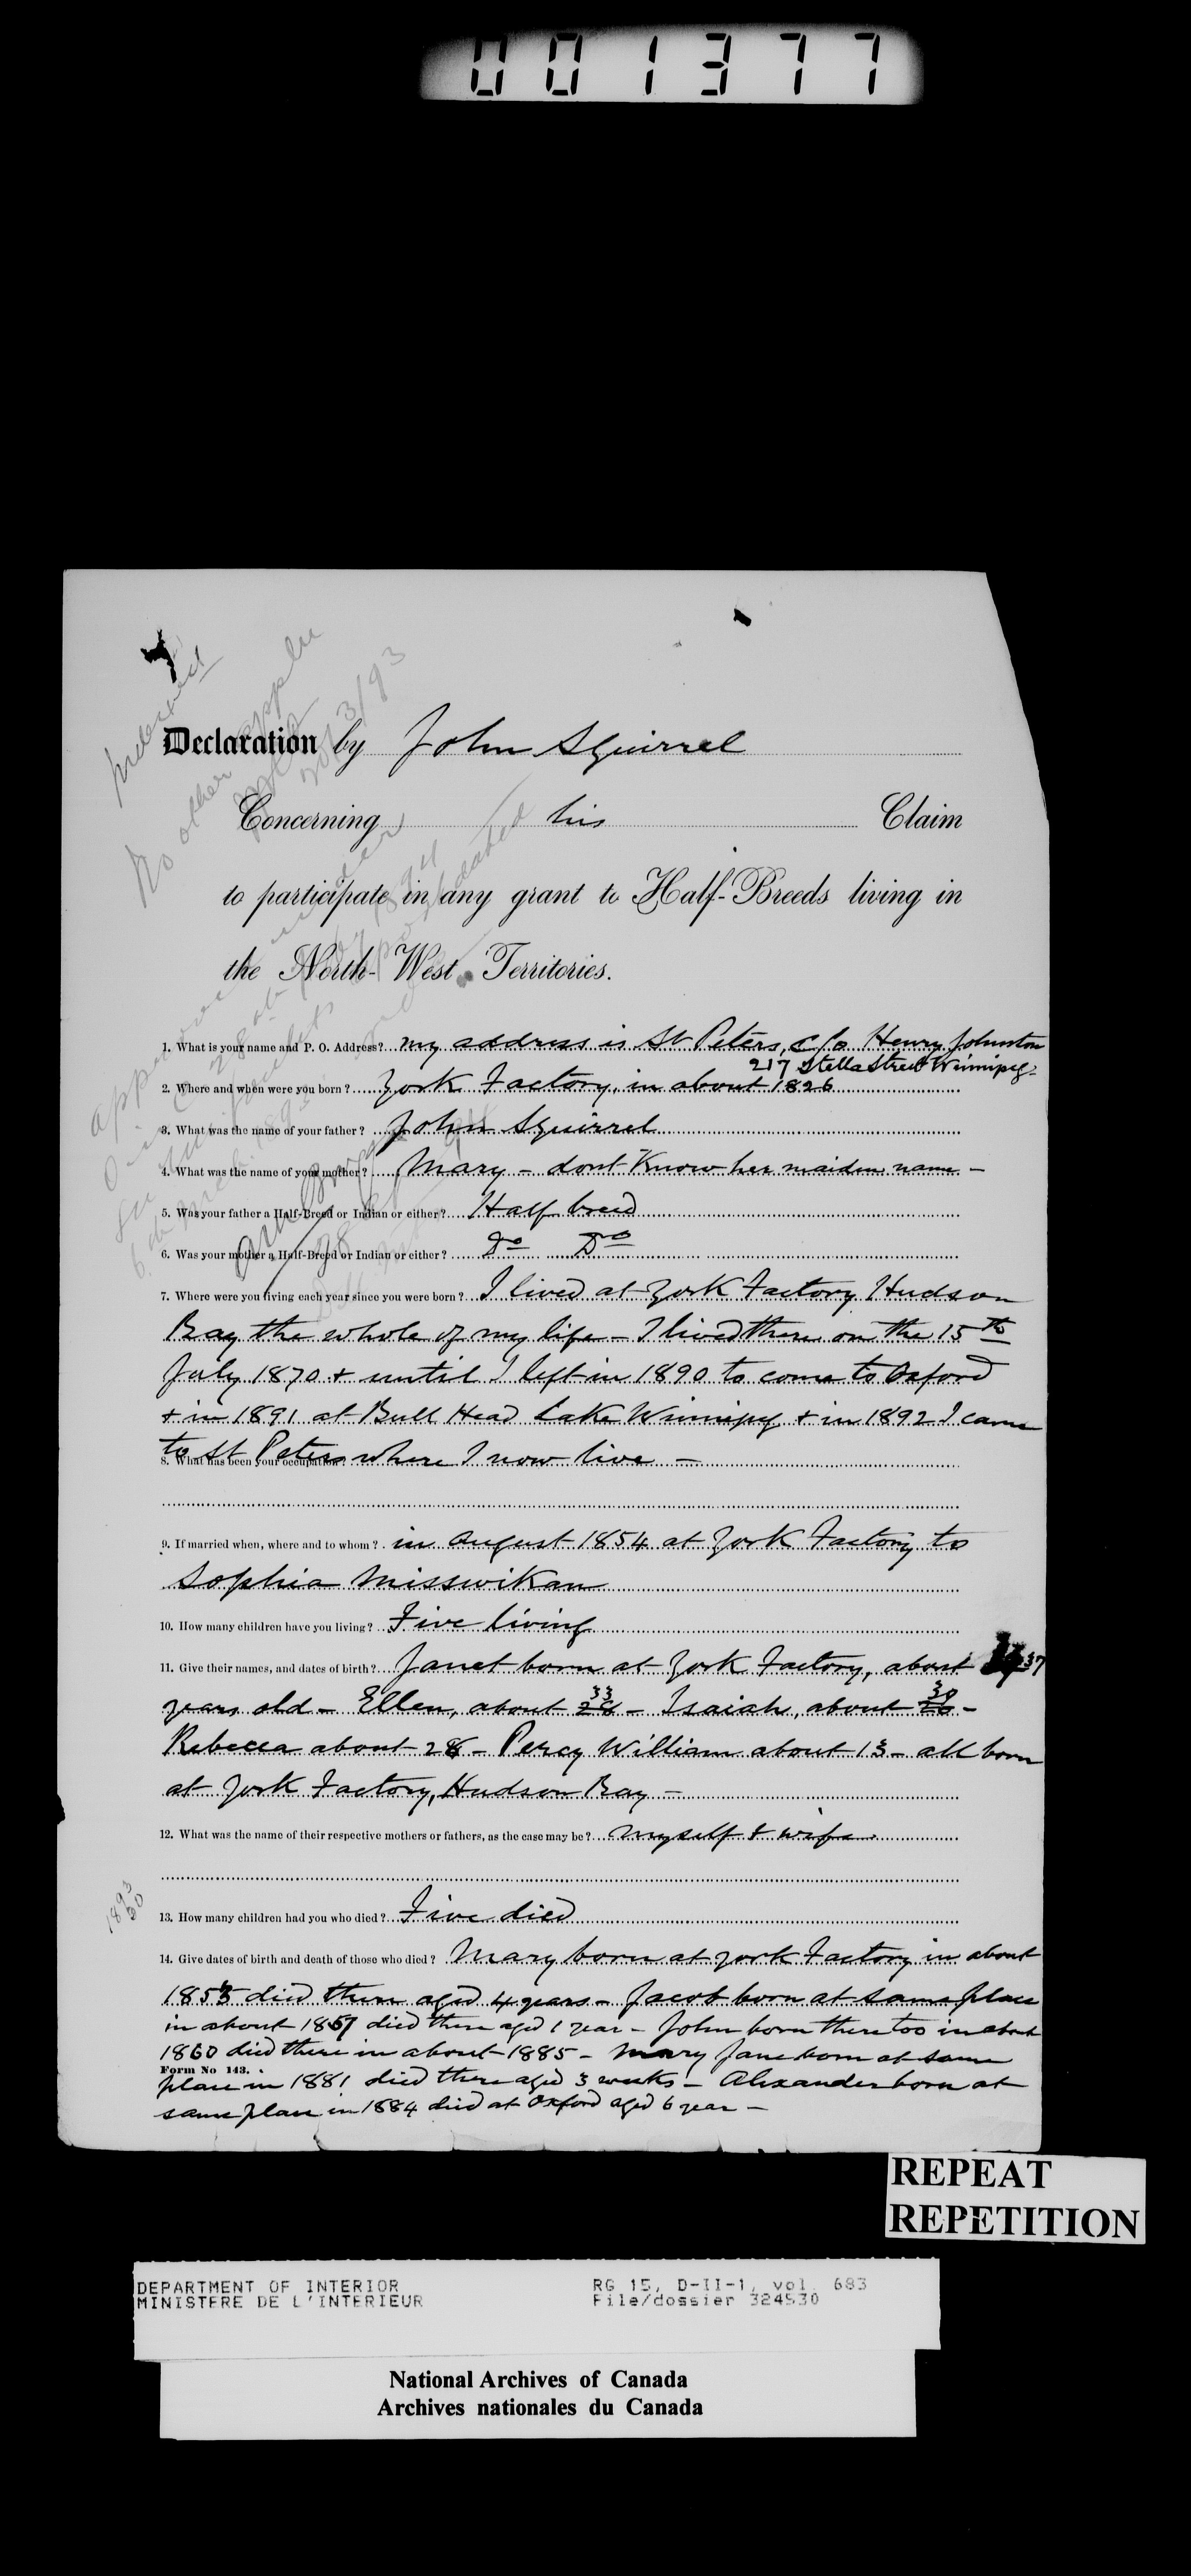 001377
Declaration by John Squirrel
Concerning his Claim
to participate in any grant to Half-Breeds living in
the North-West Territories.
No other appln
1. What is your name and P. O. Address? My address is St Peters, c/o Henry Johnston
217 Stella Street Winnipeg-
2. Where and when were you born? York Factory, in about 1826
3. What was the name of your father? John Squirrel
4. What was the name of your mother? Mary - dont Know her maiden name -
5. Was your father a Half-Breed or Indian or either? Half breed
6. Was your mother a Half-Breed or Indian or either? Do Do
7. Where were you living each year since you were born? I lived at York Factory Hudson
Bay the whole of my life - I lived there on the 15th
July 1870 + until I left in 1890 to come to Oxford
+ in 1891 at Bull Head Lake Winnipeg + in 1892 I came
to St Peters where I now live -
8. What has been your occupation
9. If married when, where and to whom? in August 1854 at York Factory to
Sophia Misswikan
10. How many children have you living? Five living
11. Give their names, and dates of birth? Janet born at York Factory, about 37
years old - Ellen, about 28 33 - Isaiah, about 26 30 -
Rebecca about 28 - Percy William about 13 - all born
at York Factory, Hudson Bay -
12. What was the name of their respective mothers or fathers, as the case may be? Myself & wife.
1893
20
13. How many children had you who died? Five died
14. Give dates of birth and death of those who died? Mary born at York Factory in about
1855 died there aged 4 years - Jacob born at same place
in about 1857 died there aged 1 year - John born there too in about
1860 died there in about 1885 - Mary Jane born at same
Form No 143.
place in 1881 died there aged 3 weeks - Alexander born at
same place in 1884 died at Oxford aged 6 year -
REPEAT
REPETITION
DEPARTMENT OF INTERIOR RG 15, D-II-1, vol. 683
MINISTERE DE L'INTERIEUR File/dossier 324530
National Archives of Canada
Archives nationales du Canada